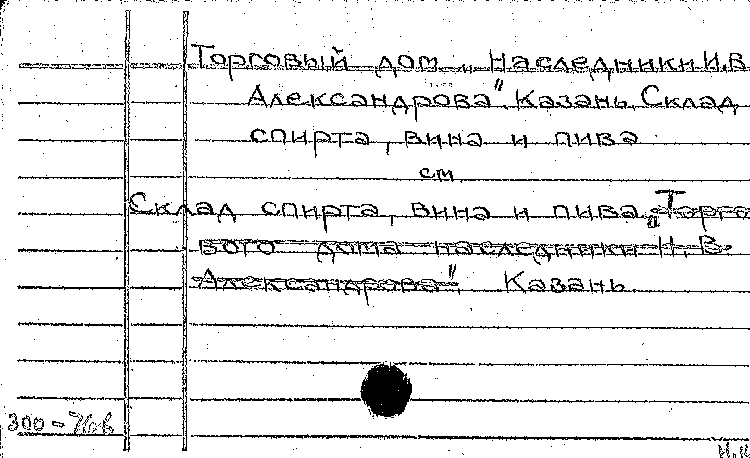 Торговый дом „Наследники И.В.
Александрова" Казань. Склад
спирта, вина и пива
см.
Склад спирта, вина и пива „Торго
вого дома наследники И. В.
Александрова" Казань.
300 -